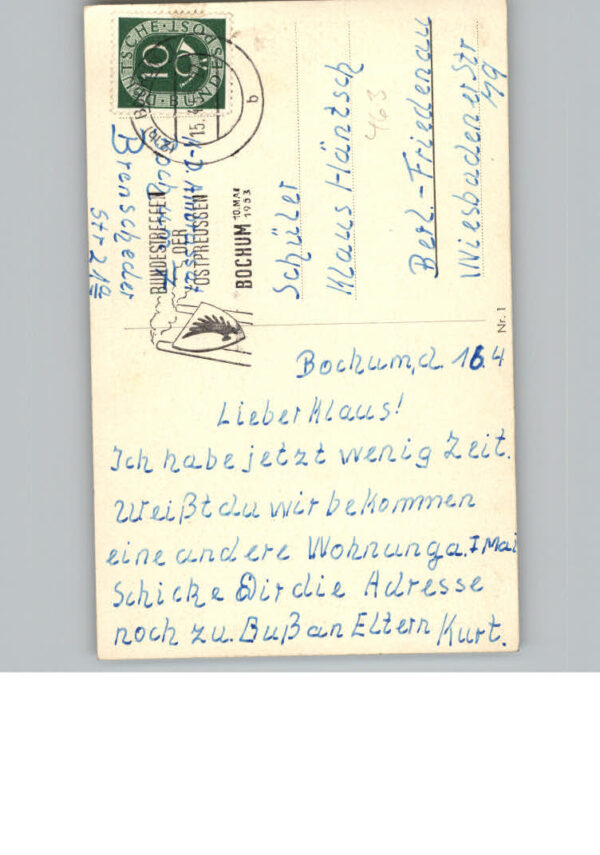 Bochum, d. 16.4
Lieber Klaus!
Ich habe jetzt wenig Zeit.
Weißt du wir bekommen
eine andere Wohnung a. I Mai
Schicke Dir die Adresse
noch zu. Buß an Eltern Kurt.
Schüler
Klaus Häntsch
463
Berl.-Friedenau
Wiesbadener Str
Nr. 1
DEUTSCHE BUNDESPOST
10
15.4
b
BUNDESTREFFEN
DER
OSTPREUSSEN
BOCHUM 10. MAI
1953
Bochum
Brenscheder
Str 21